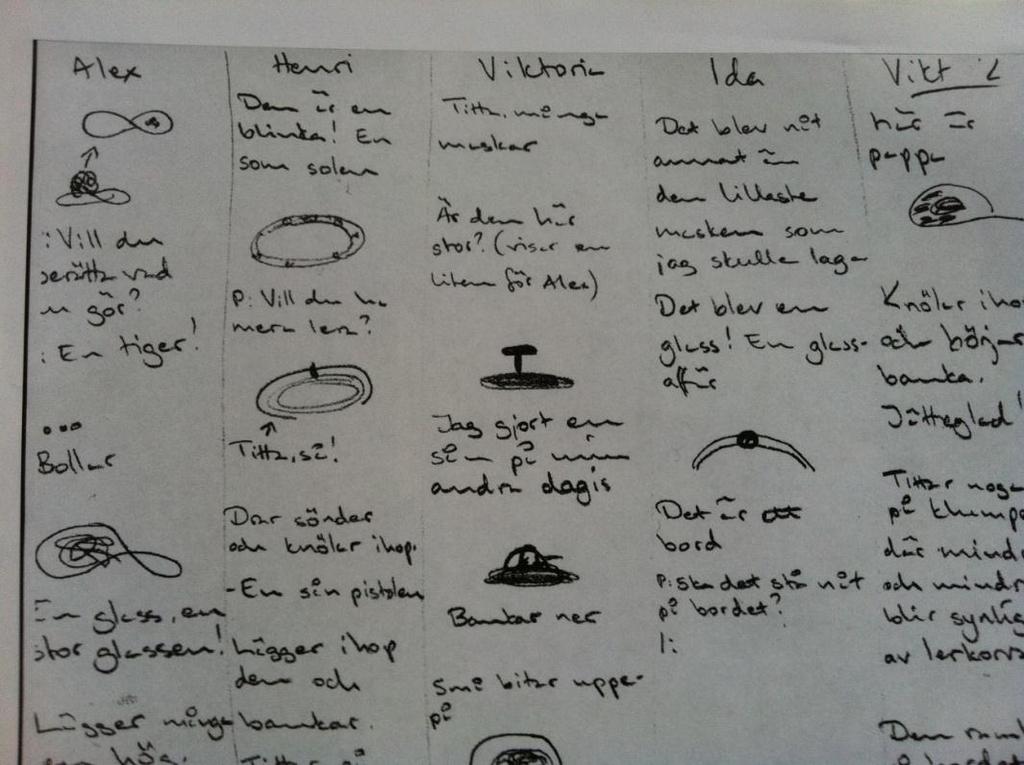 Alex
: Vill du
berätta vad
du gör?
: En tiger!
Bollar
En glass, en
stor glassen!
Lägger många
en hög.
Henri
Den är en
blinka! En
som solen
P: Vill du ha
mera lera?
Titta, så!
Drar sönder
och knölar ihop.
- En sån pistolen
Lägger ihop
dem och
bankar.
Viktoria
Titta, många
maskar
Är den här
stor? (visar en
liten för Alex)
Jag gjort en
sån på min
andra dagis
Bankar ner
små bitar uppe-
på
Ida
Det blev nåt
annat än
den lillaste
masken som
jag skulle laga
Det blev en
glass! En glass-
affär
Det är ett
bord
P: ska det stå nåt
på bordet?
I:
Vikt 2
här är
pappa
Knölar ihop
och börjar
banka.
Jätteglad!
Tittar noga
på klump
där mindr
och mindr
blir synlig
av lerkorv